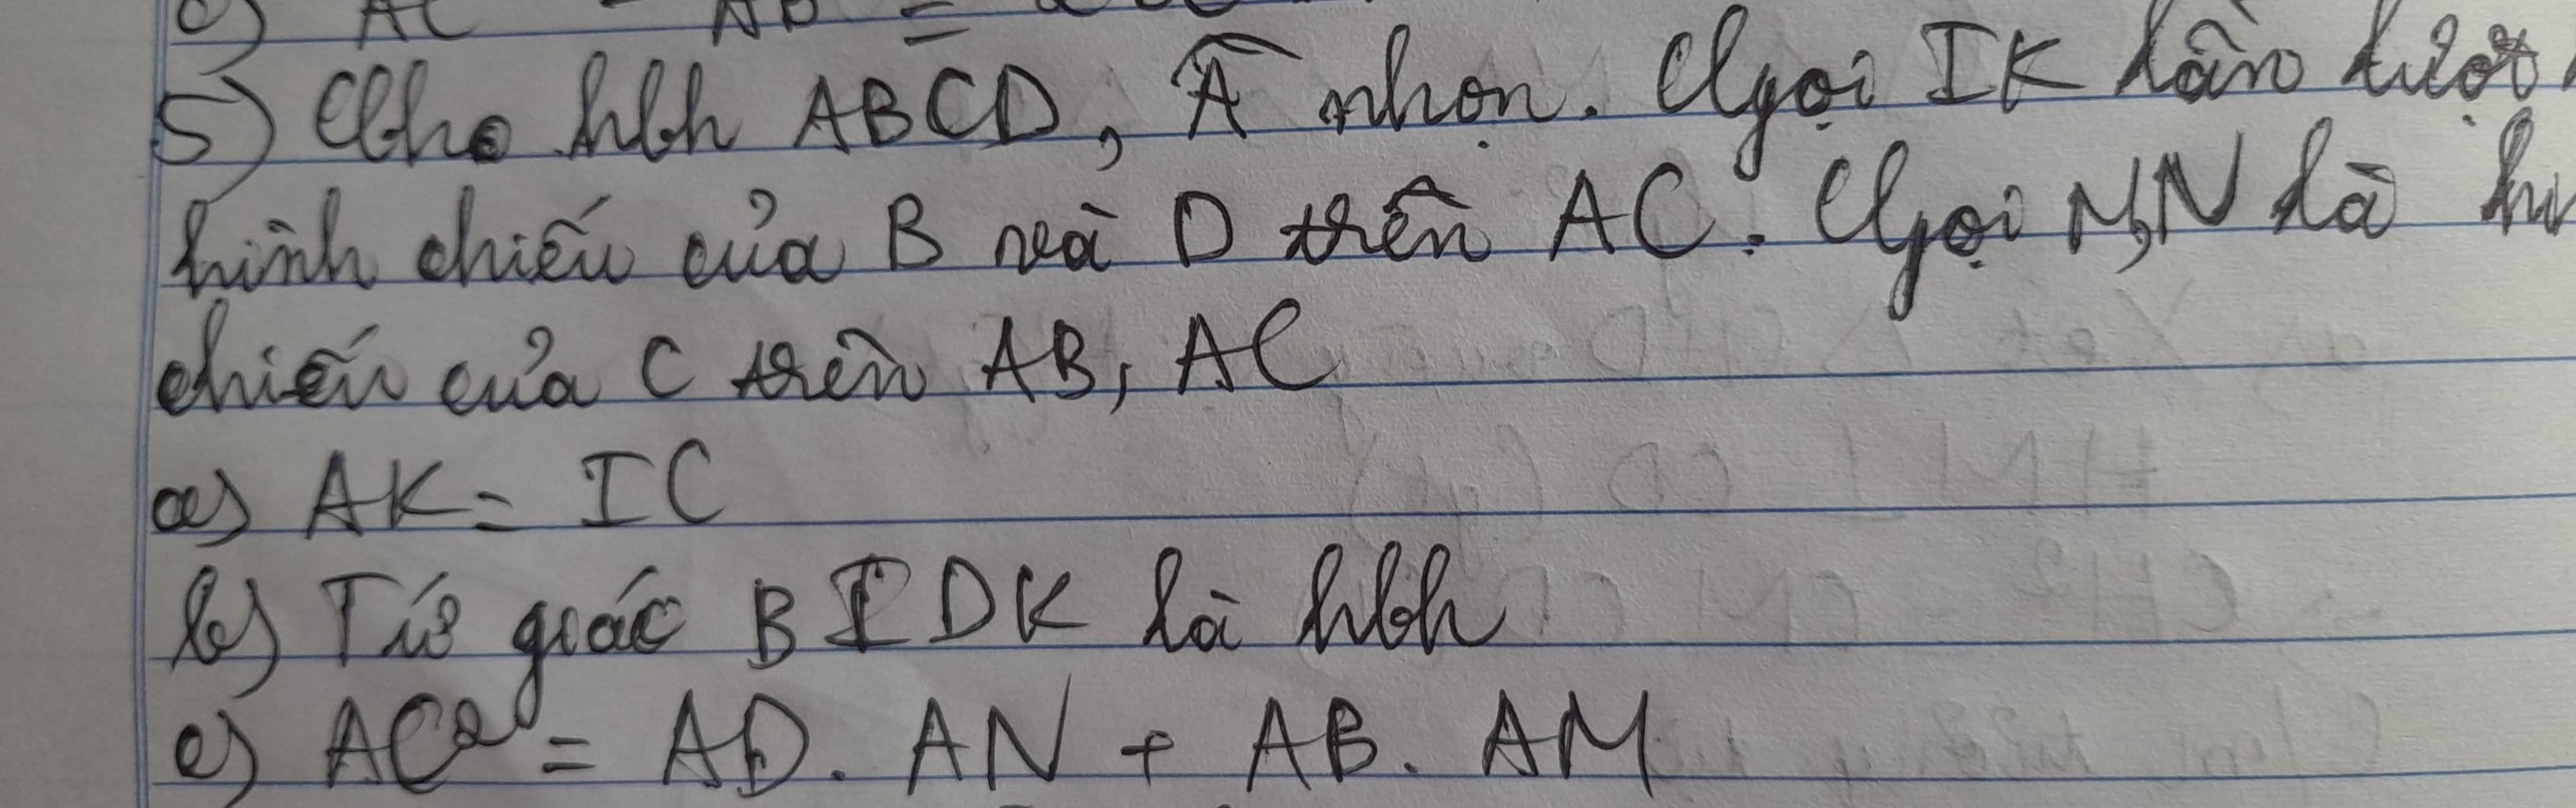 c) AC - AB =
5) Cho hbh ABCD, Â nhọn. Gọi IK lần lượt
hình chiếu của B và D trên AC. Gọi M,N là
chiếu của C trên AB, AC
a) AK = IC
b) Tứ giác BIDK là hbh
c) AC² = AD. AN + AB. AM